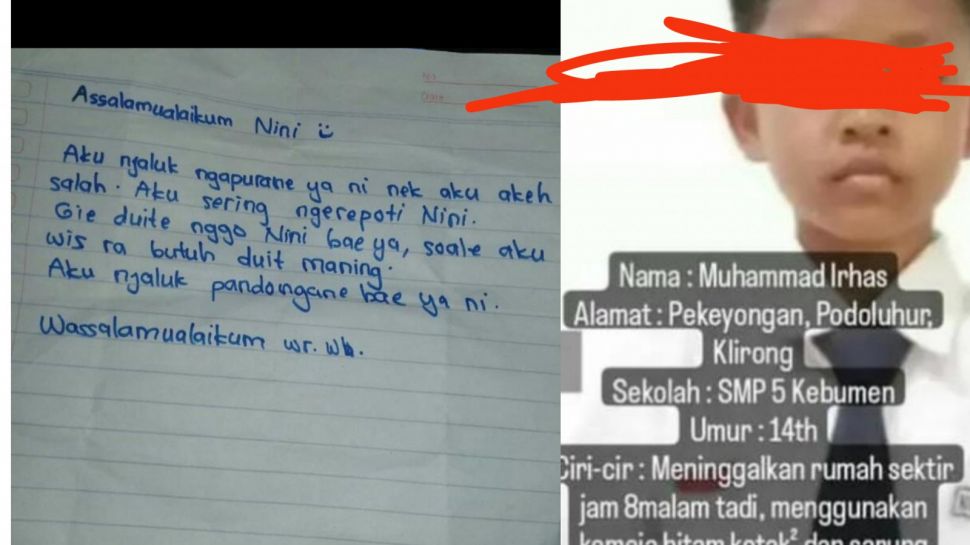 Assalamualaikum Nini
Aku njaluk ngapurane ya ni nek aku akeh
salah. Aku sering ngerepoti Nini.
Gie duite nggo Nini bae ya, soale aku
wis ra butuh duit maning.
Aku njaluk pandongane bae ya ni.
Wassalamualaikum wr. wb.
Nama : Muhammad Irhas
Alamat : Pekeyongan, Podoluhur,
Klirong
Sekolah : SMP 5 Kebumen
Umur : 14th
Ciri-cir : Meninggalkan rumah sektir
jam 8malam tadi, menggunakan
kemeja hitam kotak² dan sarung